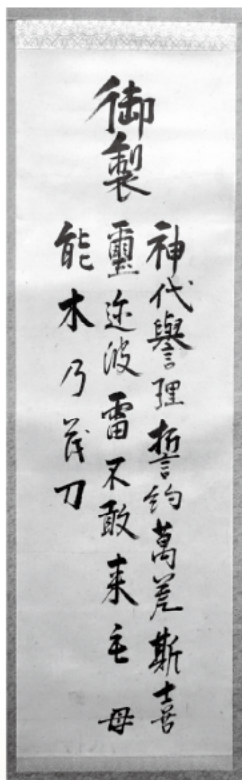 御製
神代譽理誓約萬差斯喜
璽迩波雷不敢来毛母
能木乃茂刀